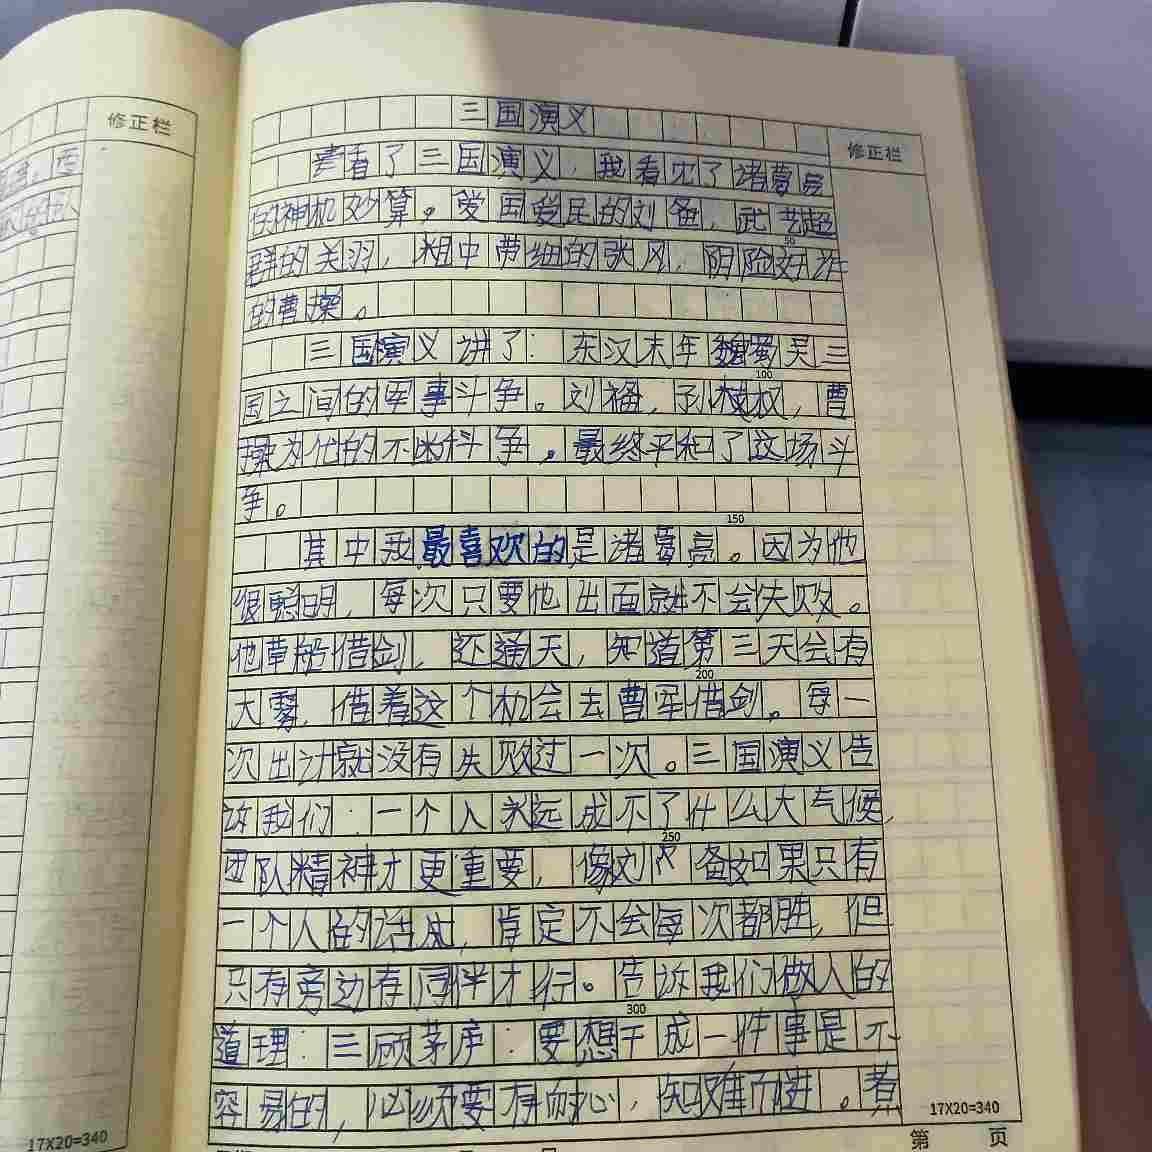 三国演义
修正栏
修正栏
看了三国演义，我看见了诸葛亮
的神机妙算。爱国爱民的刘备，武艺超
50
群的关羽，粗中带细的张风，阴险奸诈
的曹操。
三国演义讲了：东汉末年魏蜀吴三
100
国之间的军事斗争。刘备，孙权，曹
操为代的不断斗争。最终平和了这场斗
争。
150
其中我最喜欢的是诸葛亮。因为他
很聪明，每次只要他出面就不会失败。
他草船借剑，还通天，知道第三天会有
200
大雾，借着这个机会去曹军借剑。每一
次出计就没有失败过一次。三国演义告
诉我们：一个人永远成不了什么大气候，
250
团队精神才更重要，像刘备如果只有
一个人的话，肯定不会每次都胜，但
只有旁边有同伴才行。告诉我们做人的
300
道理：三顾茅庐：要想干成一件事是不
容易的，必须要有耐心，知难而进。煮
17X20=340
17X20=340
第 页